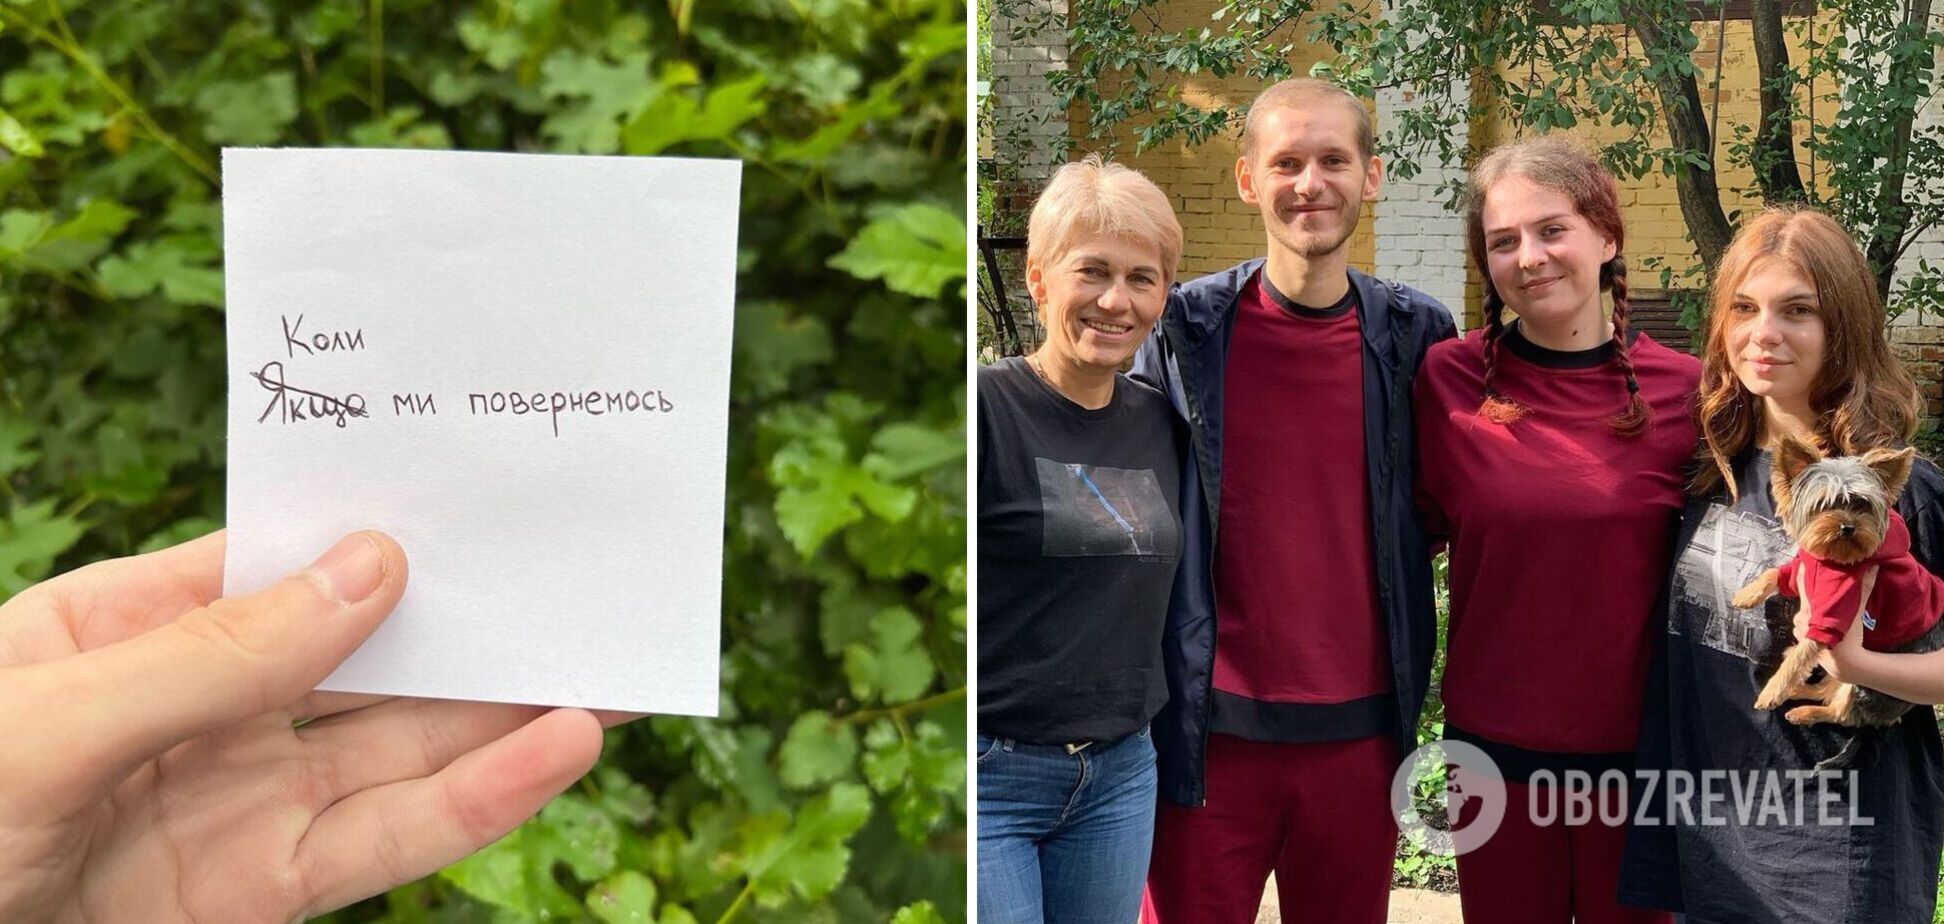 Коли
Якщо ми повернемось
OBOZREVATEL